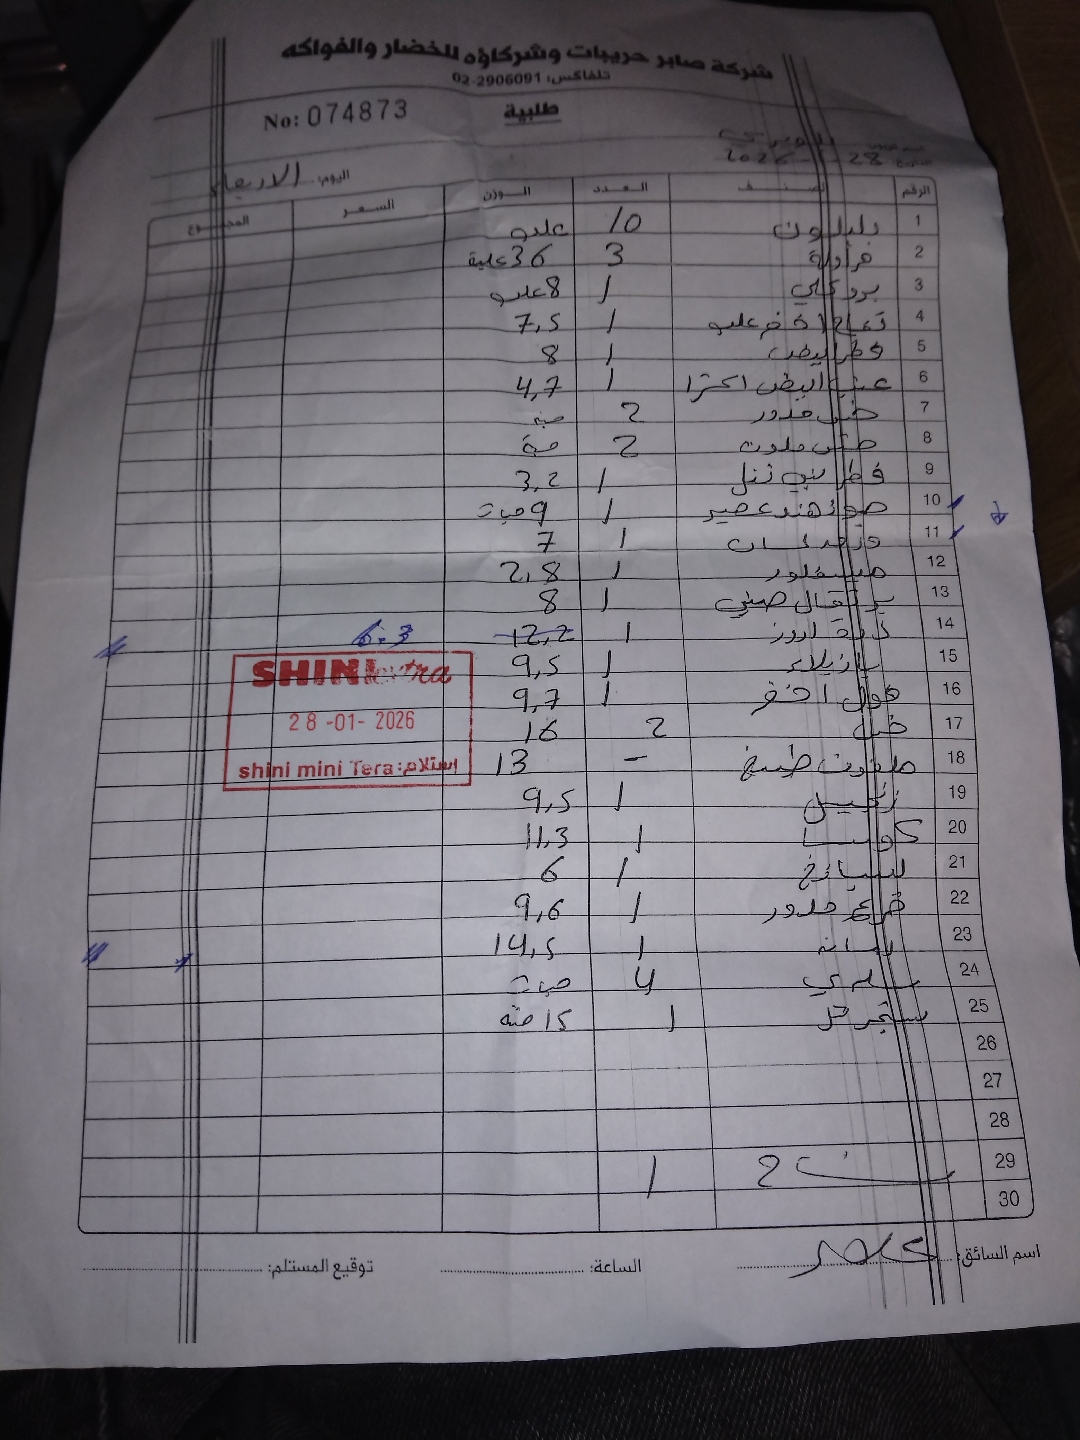 شركة صابر حريبات وشركاؤه للخضار والفواكه
تلفاكس: 02-2906091
طلبية
No: 074873
28 2026
اليوم: الاربعاء
الرقم الصنف العدد الوزن السعر المجموع
1 10 علبه
2 فراولة 3 36 علبة
3 بروكلي 1 8 علبه
4 تفاح اخضر علبه 1 7,5
5 فطر ابيض 1 8
6 عنب ابيض اكترا 1 4,7
7 خس مدور 2 حبه
8 خس ملون 2 حبة
9 فطر 1 3,2
10 جوز هند عصير 1 9 حبات
11 1 7
12 1 2,8
13 برتقال صيني 1 8
14 1 12,2 6.3
15 بازيلاء 1 9,5
16 فول اخضر 1 9,7
17 خس 2 16
18 ملفوف طبيخ - 13
19 زنجبيل 1 9,5
20 كوسا 1 11,3
21 سبانخ 1 6
22 قرع مدور 1 9,6
23 1 14,5
24 4 حبات
25 1 15
26
27
28
29 1
30
SHINI extra
28-01-2026
shini mini Tera: استلام
اسم السائق:
الساعة:
توقيع المستلم: